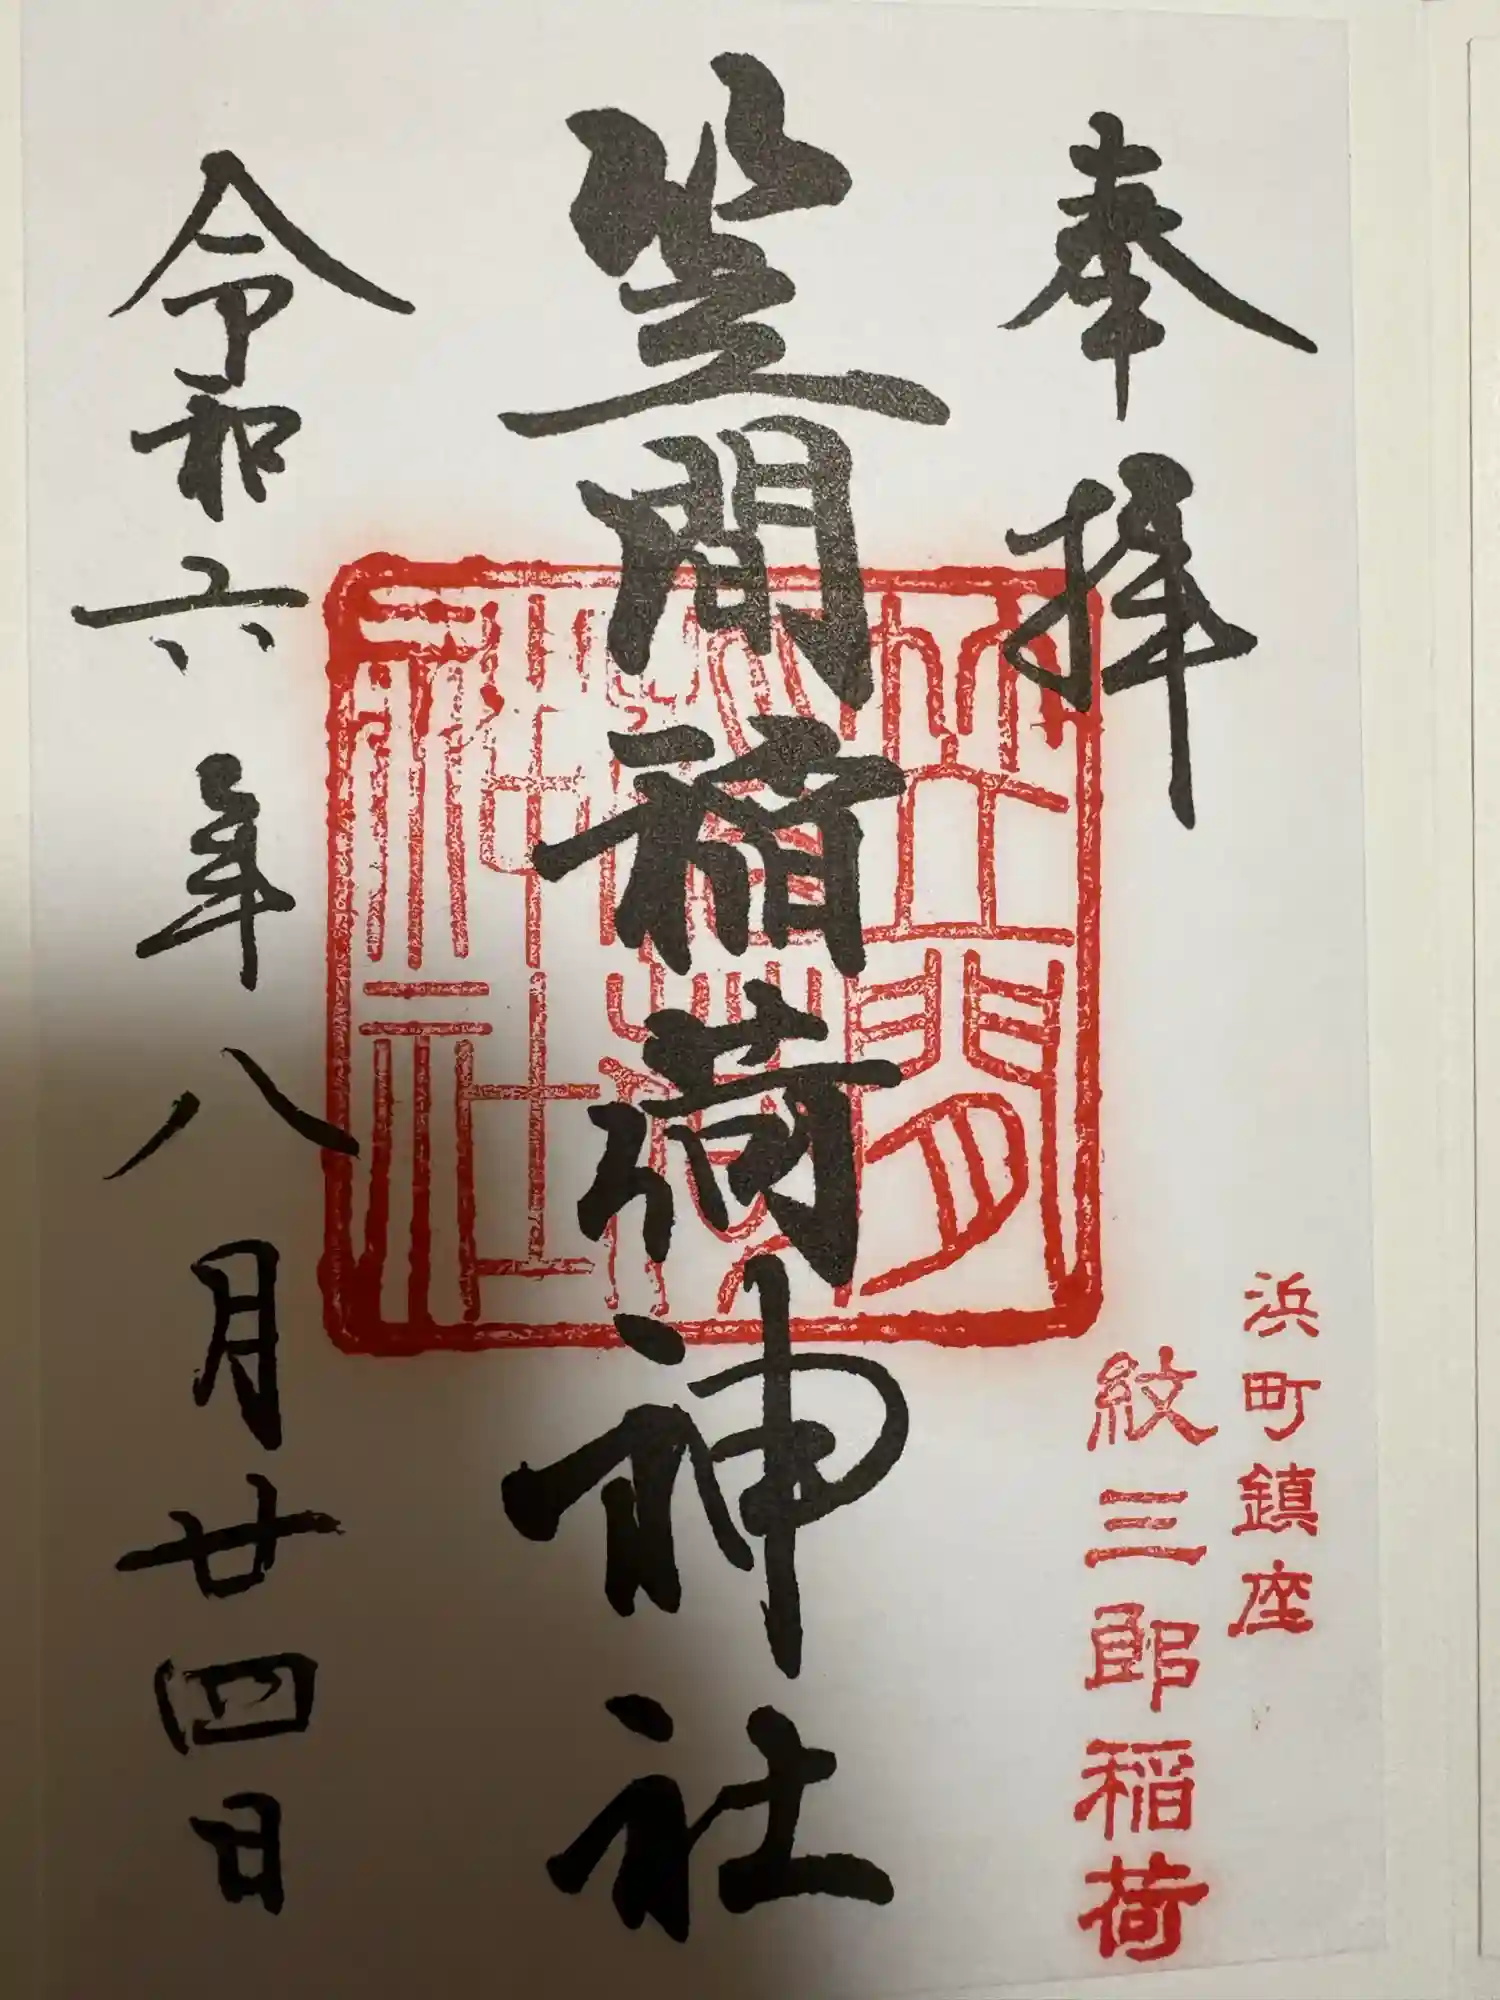 奉拝
浜町鎮座
紋三郎稲荷
笠間稲荷神社
笠間稲荷神社
令和六年八月廿四日